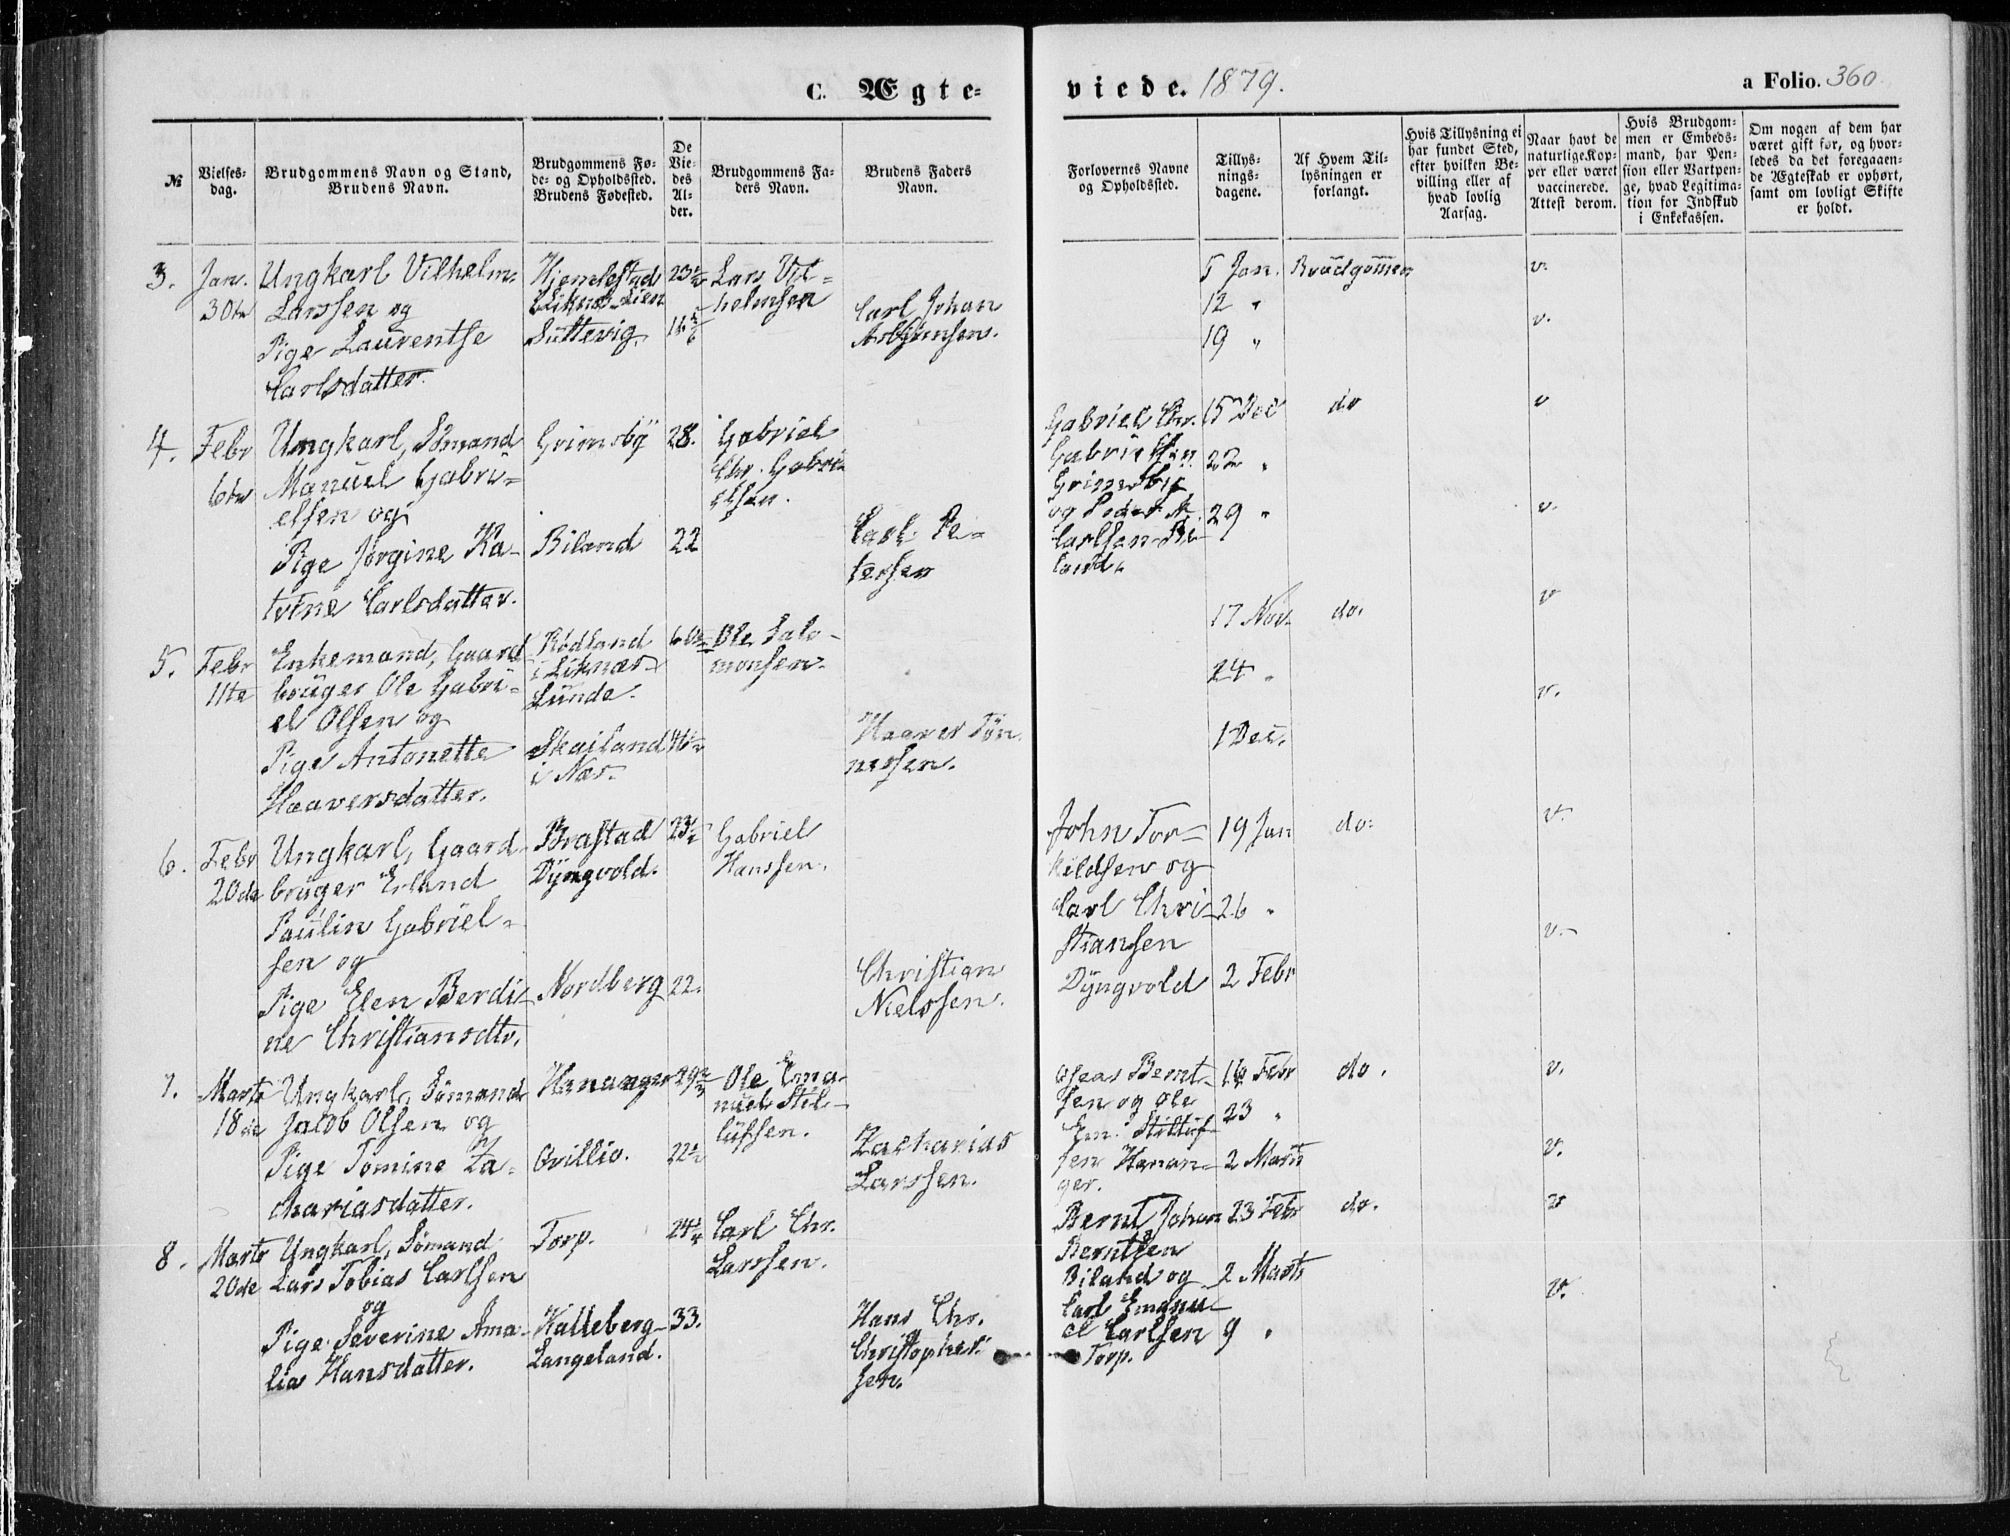 C. Ægte-
viede. 1879.
a Folio. 360
№
Vielses-
dag.
Brudgommens Navn og Stand,
Brudens Navn.
Brudgommens Fø-
de- og Opholdssted.
Brudens Fødested.
De
Vie-
des
Al-
der.
Brudgommens Fa-
ders Navn.
Brudens Faders
Navn.
Forlovernes Navne
og Opholdssted.
Tillys-
nings-
dagene.
Af Hvem Til-
lysningen er
forlangt.
Hvis Tillysning ei
har fundet Sted,
efter hvilken Be-
villing eller af
hvad lovlig
Aarsag.
Naar havt de
naturlige Kop-
per eller været
vaccinerede.
Attest derom.
Hvis Brudgom-
men er Embeds-
mand, har Pen-
sion eller Vartpen-
ge, hvad Legitima-
tion for Indskud
i Enkekassen.
Om nogen af dem har
været gift før, og hvor-
ledes da det foregaaen-
de Ægteskab er ophørt,
samt om lovligt Skifte
er holdt.
3.
Jan.
30te
Ungkarl Vilhelm
Larssen og
Pige Laurentse
Carlsdatter.
Hjemlestad
Liknes Lien
Suttevig
23½
Lars Vil-
helmsen
Carl Johan
Asbjørnsen.
5 Jan.
12 "
19 "
Brudgommen
v.
v.
4.
Febr
6te
Ungkarl, Sømand
Manuel Gabri-
elsen og
Pige Jørgine Ka-
trine Carlsdatter.
Grimsby
Biland
28.
22
Gabriel
Chr. Gabri-
elsen.
Carl Pe-
tersen
Gabriel Chr.
Gabrielsen
Grimsby
og Peder N.
Carlsen Bi-
land.
15 Dec
22 "
29 "
do
v
v.
5.
Febr
11te
Enkemand, Gaard
bruger Ole Gabri-
el Olsen og
Pige Antonette
Haaversdatter.
Rødland
i Liknes
Lunde.
Skailand
i Næs
46½
Ole Salo-
monsen.
Haaver Tøn
nessen.
17 Nov.
24 "
1 Dec.
do.
v
v.
6.
Febr
20de
Ungkarl, Gaard-
bruger Erland
Paulin Gabriel-
sen og
Pige Elen Berdi-
ne Christiansdtr.
Brastad
Dyngvold.
Nordberg
23½
22.
Gabriel
Hanssen.
Christian
Nielssen.
John Tor-
kildsen og
Carl Chri-
stiansen
Dyngvold
19 Jan
26 "
2 Febr
do.
v.
v.
7.
Marts
18de
Ungkarl, Sømand
Jacob Olsen og
Pige Tomine Za-
chariasdatter.
Hananger
Qvillio.
22½
Ole Ema-
nuel Stil-
lufsen.
Zacharias
Larssen.
Oseas Bernt-
sen og Ole
Em. Stilluf-
sen Hanan-
ger.
16 Febr
23 "
2 Marts
do.
v.
v.
8.
Marts
20de
Ungkarl, Sømand
Lars Tobias Carlsen
og
Pige Severine Ama-
lia Hansdatter.
Torp.
Kalleberg
Langeland.
24¼
33.
Carl Chr.
Larssen.
Hans Chr.
Christopher-
sen.
Bernt Johan
Berntsen
Biland og
Carl Emanu-
el Carlsen
Torp.
23 Febr
2 Marts
9 "
do.
v
v.